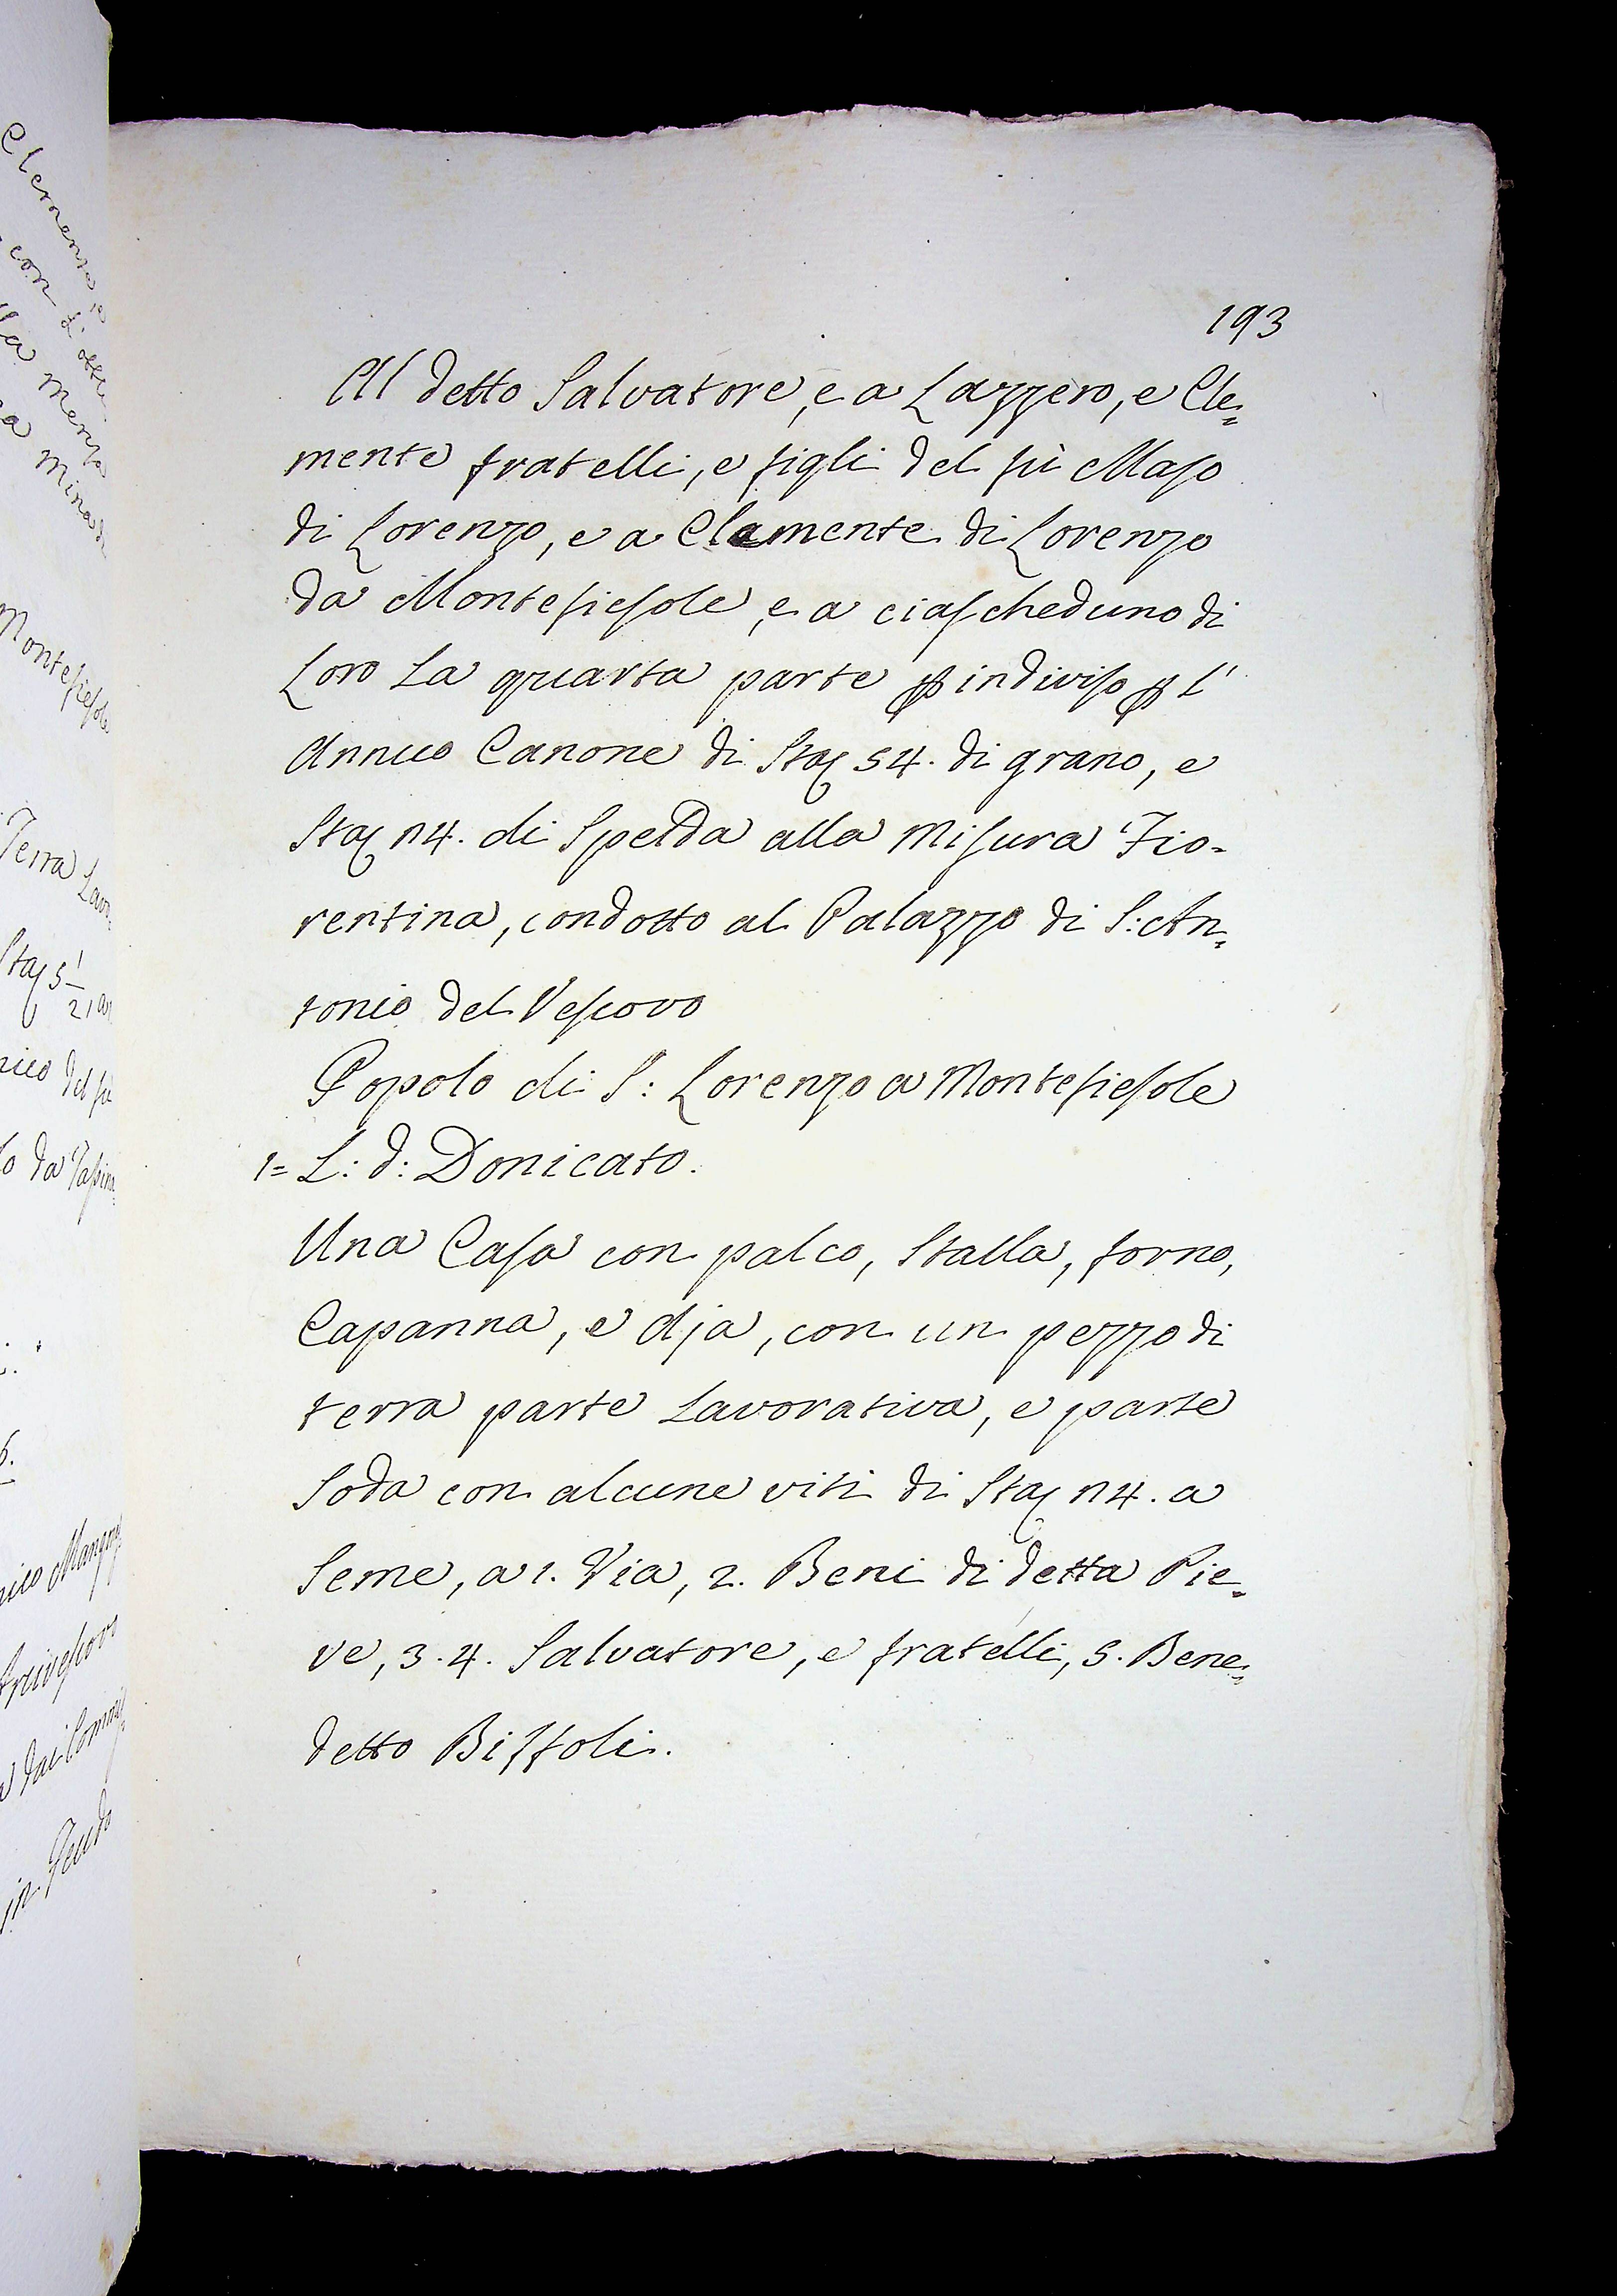 193
Al detto Salvatore, e a Lazzero, e Cle=
mente fratelli, e figli del fù Maso
di Lorenzo, e a Clemente di Lorenzo
da Montefiesole, e a ciascheduno di
Loro La quarta parte ꝑ indiviso ꝑ L'
Annuo Canone di Staj 54. di grano, e
Staj 14. di Spelda alla Misura Fio-
rentina, condotto al Palazzo di S: An=
tonio del Vescovo
Popolo di S: Lorenzo a Montefiesole
1= L: d: Donicato.
Una Casa con palco, Stalla, forno,
Capanna, e Aja, con un pezzo di
terra parte Lavorativa, e parte
Soda con alcune viti di Staj 14. a
Seme, a 1. Via, 2. Beni di detta Pie=
ve, 3. 4. Salvatore, e fratelli, 5. Bene=
detto Biffoli.